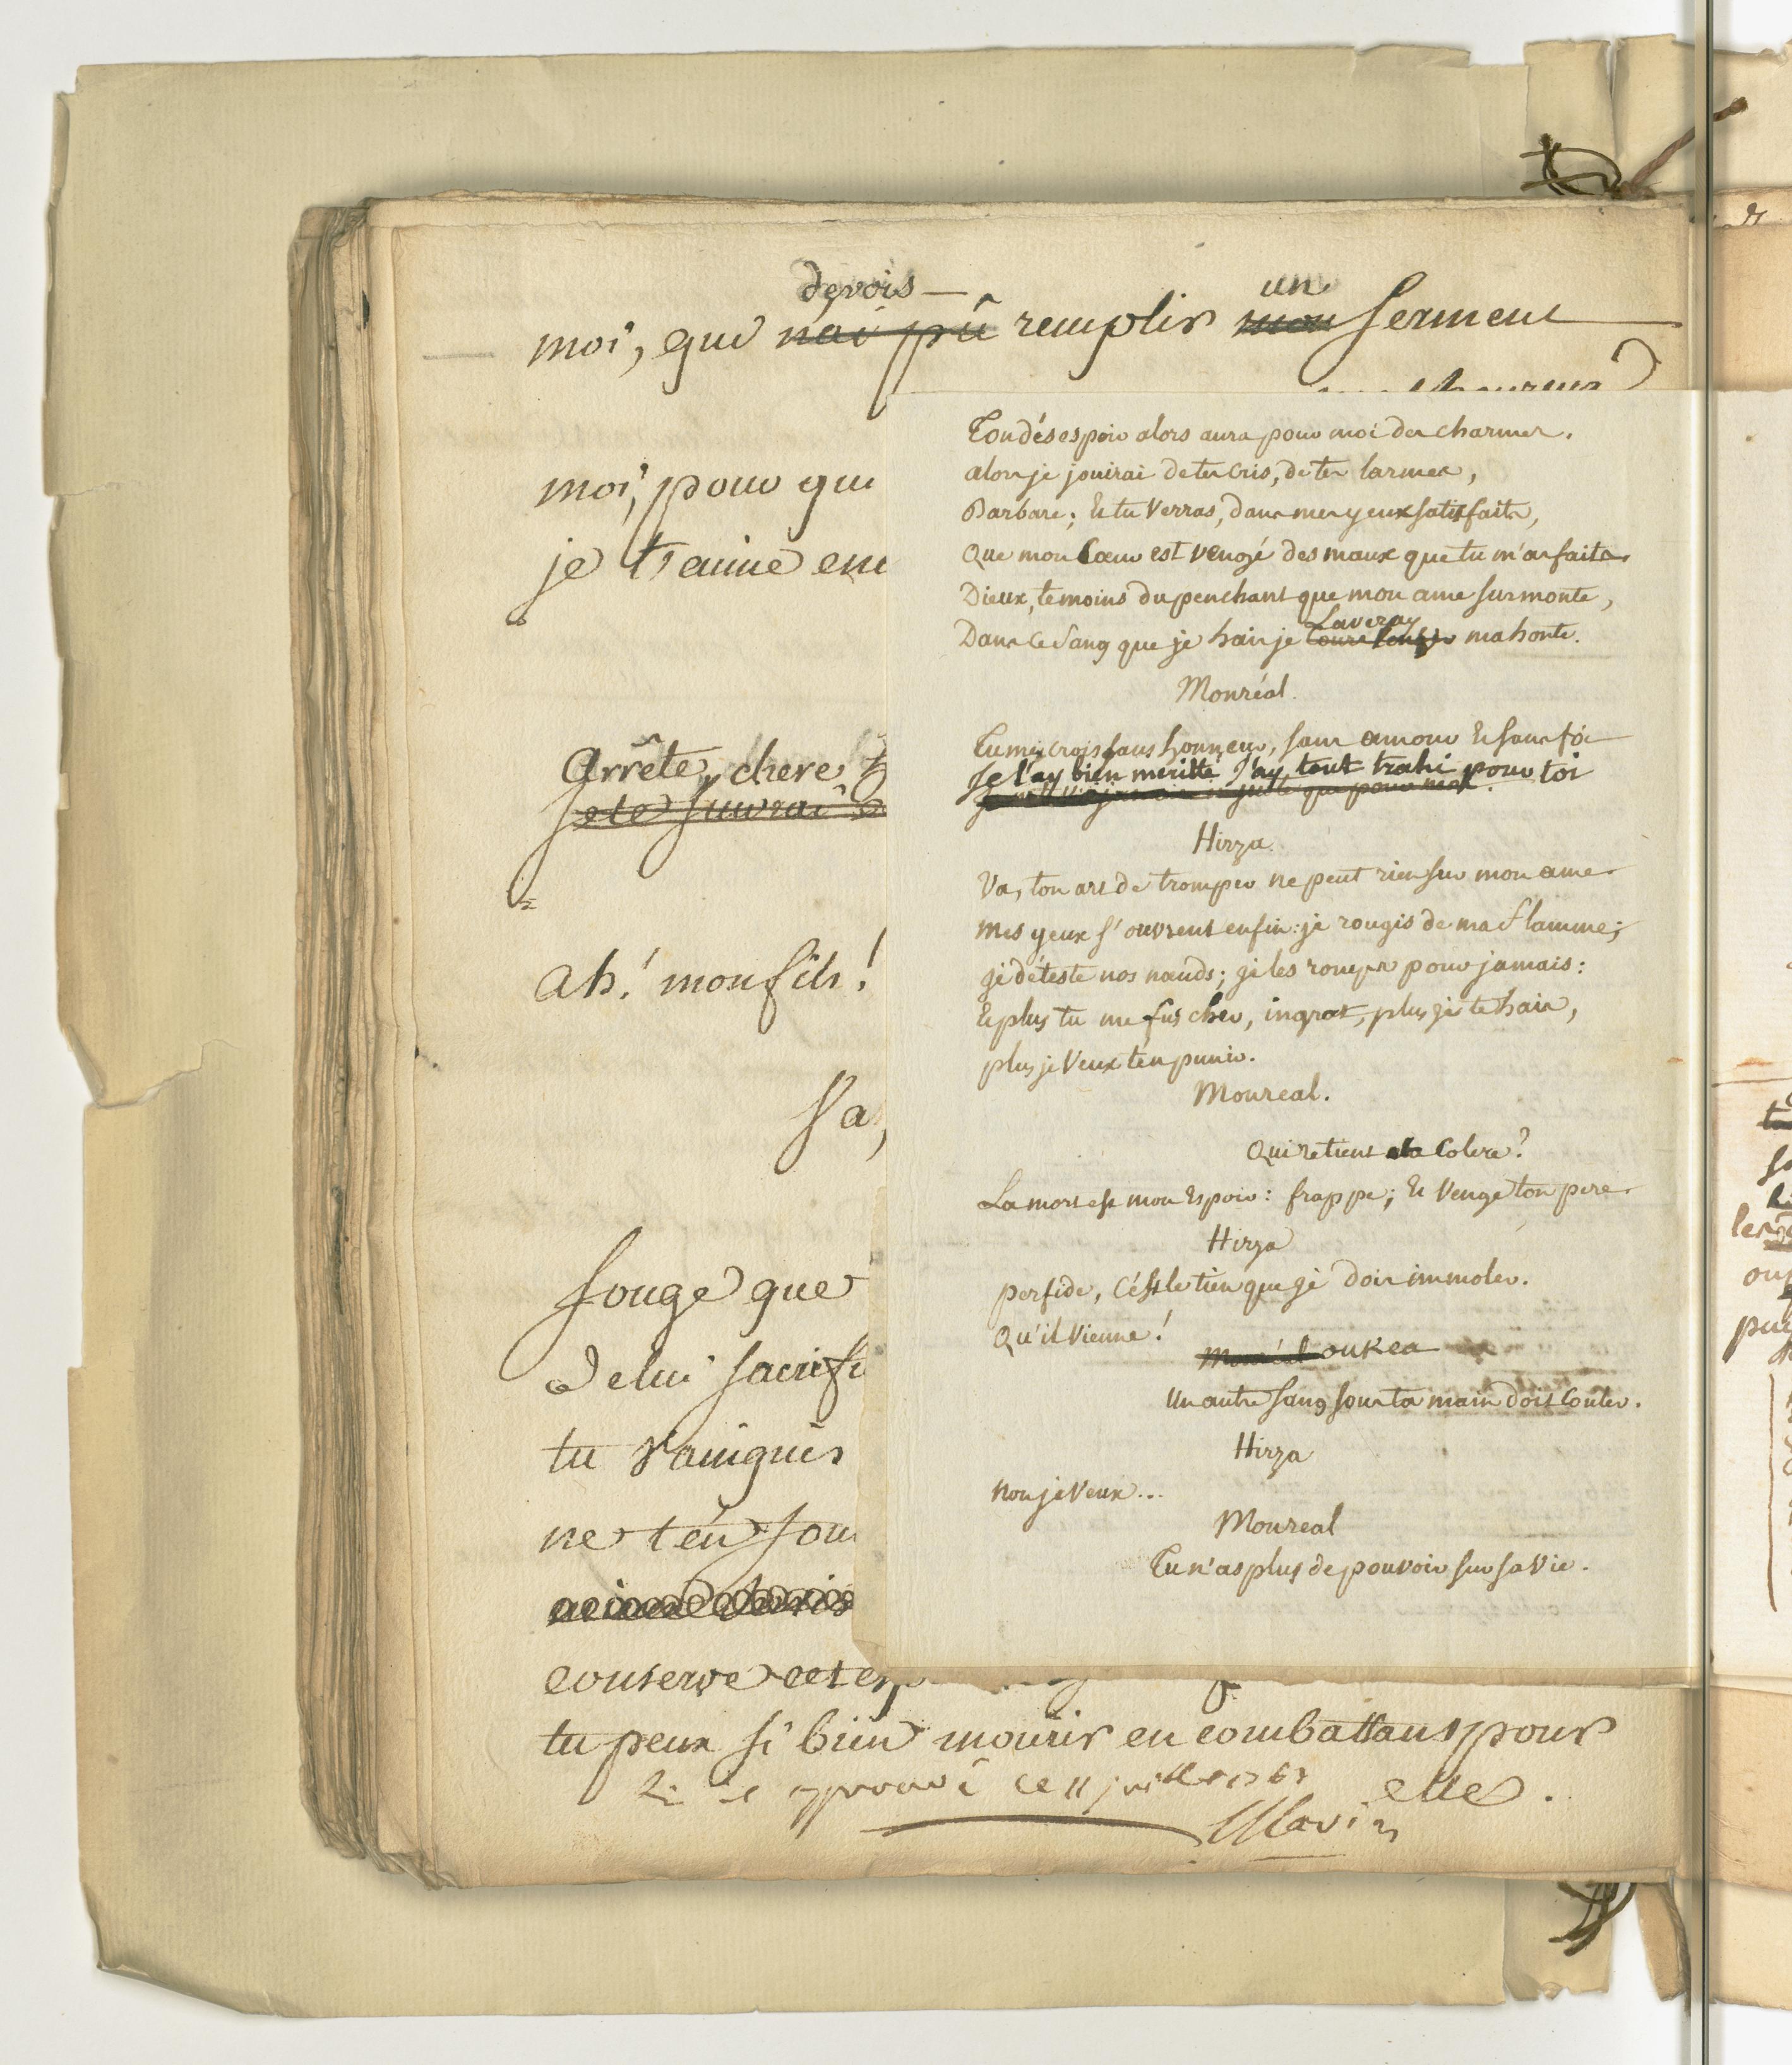 devois — un
moi, que n'ai pû remplir mon serment
Ton désespoir alors aura pour moi des charmes.
alors je jouirai de tes cris, de tes larmes,
Barbare; Et tu Verras, dans mes yeux satisfaits,
Que mon Cœur est vengé des maux que tu m'as faits
Dieux, temoins du penchant que mon ame surmonte,
Laveray
Dans le Sang que je hais je ma honte.
Monréal.
Tu me crois sans honneur, sans amour Et sans foi
Je l'ay bien meritté J'ay tout trahi pour toi
Hirza.
Va, ton art de tromper ne peut rien sur mon ame
Mes yeux s'ouvrent enfin: je rougis de ma flamme;
je déteste nos nœuds; je les romps pour jamais:
Et plus tu me fus cher, ingrat, plus je te hais,
plus je Veux t'en punir.
Monreal.
Qui retient ta Colere?
La mort est mon Espoir: frappe; Et Venge ton pere
Hirza
perfide, C'est le tien que je dois immoler.
Qu'il vienne!
Monréal oukea
Un autre sang sous ta main doit Couler.
Hirza
Non je Veux...
Monreal
Tu n'as plus de pouvoir sur sa vie.
moi, pour qui
je t'aime en
Arrête, chere
je te suivrai
ah! mon fils!
Va,
songe que
de lui sacrifi
tu vainquis
ne t'en sou
conserve cet esp
tu peux si bien mourir en combattant pour
elle.
ce 11 juillet 1767
Marin